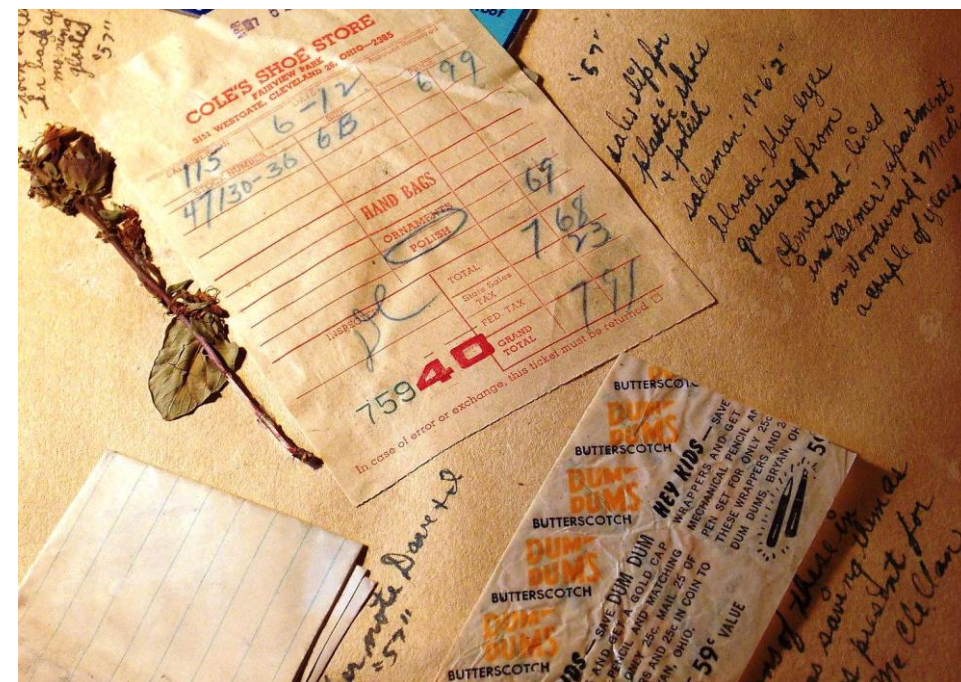 in back of
morning
glories
"57"
COLE'S SHOE STORE
FAIRVIEW PARK
3151 WESTGATE, CLEVELAND 26, OHIO—2385
Amount Received
DATE
6-12
115
SIZE
6B
6 99
STOCK NUMBER
47130-36
HAND BAGS
ORNAMENTS
POLISH
69
TOTAL
7 68
Store Sales
TAX
23
INSPECTED
FED. TAX
GRAND
TOTAL
7 91
75940
In case of error or exchange, this ticket must be returned
"57"
sales slip for
plastic shoes
& polish
salesman: 18-6'2"
blonde-blue eyes
graduated from
Olmstead-lived
in Bemer's apartment
on Woodward & Madi
a couple of years
note Dave & I
"57"
BUTTERSCOTCH
DUM
DUMS
BUTTERSCOTCH
DUM
DUMS
BUTTERSCOTCH
DUM
DUMS
BUTTERSCOTCH
DUM
DUMS
BUTTERSCOTCH
HEY KIDS—SAVE
WRAPPERS AND GET
MECHANICAL PENCIL AN
PEN SET FOR ONLY 25¢
THESE WRAPPERS AND 2
DUM DUMS, BRYAN, OH
DS—SAVE DUM DUM
AND GET A GOLD CAP
PENCIL AND MATCHING
ONLY 25¢. MAIL 25 OF
RS AND 25¢ IN COIN TO
YAN, OHIO.
59¢ VALUE
of these in
saving them as
present for
Mc Clellan